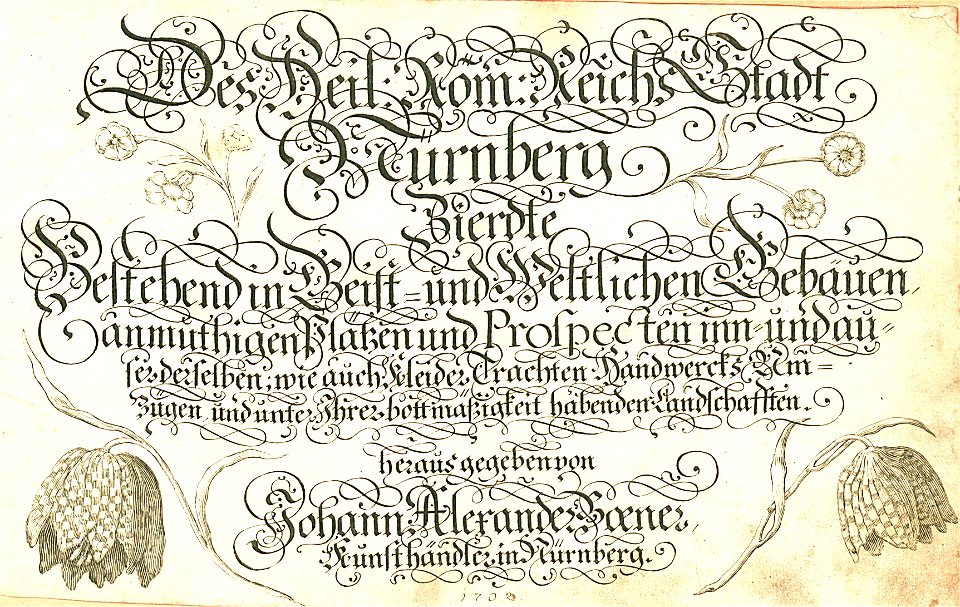 Des Heil: Röm: Reichs Stadt
Nürnberg
Vierdte
Bestehend in Geist= und Weltlichen Gebäuen,
anmuthigen Pläzen und Prospecten inn- und au=
ser derselben; wie auch Kleider Trachten Handwercks Um=
zügen und unter Ihrer bottmäßigkeit habenden Landschafften.
heraus gegeben von
Johann Alexander Boener,
Kunsthändler in Nürnberg.